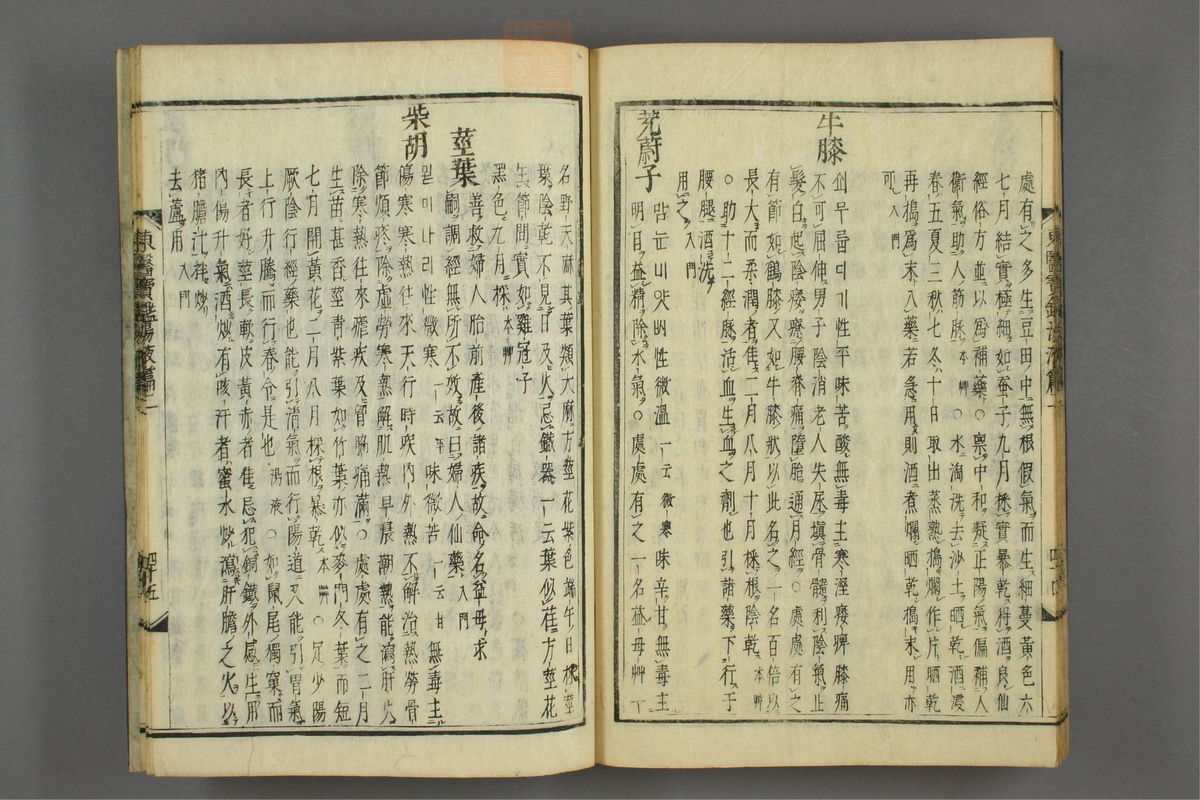 處有之多生豆田中無根假氣而生細蔓黃色六
七月結實極細如蚕子九月採實暴乾得酒良仙
經俗方並以爲補藥○稟中和凝正陽氣偏補人
衛氣助人筋脉本艸○水淘洗去沙土晒乾酒浸
春五夏三秋七冬十日取出蒸熟搗爛作片晒乾
再搗爲末入藥若急用則酒煮爛晒乾搗末用亦
可入門
牛膝
쇠무릅디기性平味苦酸無毒主寒溼痿痺膝痛
不可屈伸男子陰消老人失尿塡骨髓利陰氣止
髮白起陰痿療腰脊痛墮胎通月經○處處有之
有節如鶴膝又如牛膝狀以此名之一名百倍以
長大而柔潤者佳二月八月十月採根陰乾本艸
○助十二經脉活血生血之劑也引諸藥下行于
腰腿酒洗
用之入門
茺蔚子
암눈비얏性微溫一云微寒味辛甘無毒主
明目益精除水氣○處處有之一名益母艸一
名野天麻其葉類大麻方莖花紫色端午日採莖
葉陰乾不見日及火忌鐵器一云葉似荏方莖花
生節間實如雞冠子
黑色九月採本艸
莖葉
善救婦人胎前産後諸疾故命名益母求
嗣調經無所不效故曰婦人仙藥入門
柴胡
믿미나리性微寒一云平味微苦一云甘無毒主
傷寒寒熱往來天行時疾內外熱不解治熱勞骨
節煩疼除虛勞寒熱解肌熱早晨潮熱能瀉肝火
除寒熱往來瘧疾及胷脇痛滿○處處有之二月
生苗甚香莖靑紫葉如竹葉亦似麥門冬葉而短
七月開黃花二月八月採根暴乾本艸○足少陽
厥陰行經藥也能引淸氣而行陽道又能引胃氣
上行升騰而行春令是也湯液○如鼠尾獨窠而
長者好莖長軟皮黃赤者佳忌犯銅鐵外感生用
內傷升氣酒炒有咳汗者蜜水炒瀉肝膽之火以
猪膽汁拌炒
去蘆用入門
東醫寶鑑湯液篇二
四十五